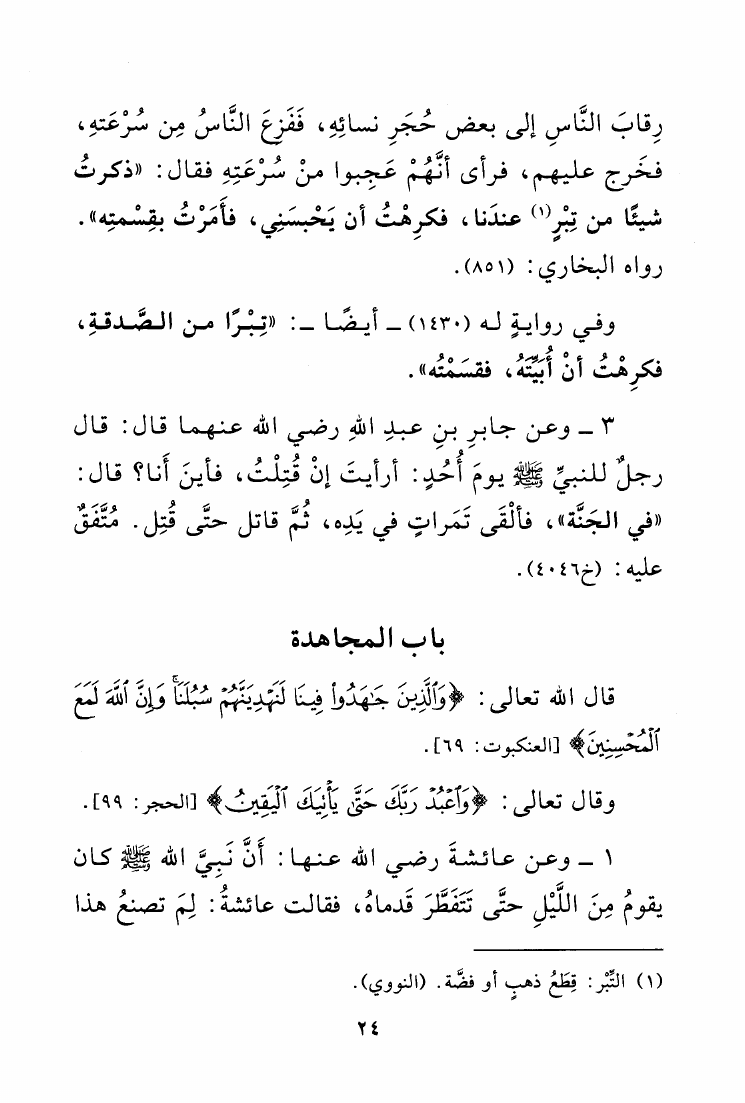 رِقابَ النَّاسِ إلى بعض حُجَرِ نسائِهِ، فَفَزِعَ النَّاسُ مِن سُرْعَتهِ،
فخَرج عليهم، فرأى أنَّهُمْ عَجِبوا منْ سُرْعَتِهِ فقال: «ذكرتُ
شيئًا من تِبْرٍ(١) عندَنا، فكرِهْتُ أن يَحْبسَنِي، فأَمَرْتُ بقِسْمتِه».
رواه البخاري: (٨٥١).
وفي روايةٍ له (١٤٣٠) ـ أيضًا ـ: «تِبْرًا من الصَّدقةِ،
فكرِهْتُ أنْ أُبَيِّتَهُ، فقسَمْتُه».
٣ ـ وعن جابرِ بنِ عبدِ اللهِ رضي الله عنهما قال: قال
رجلٌ للنبيِّ ﷺ يومَ أُحُدٍ: أرأيتَ إنْ قُتِلْتُ، فأينَ أَنا؟ قال:
«في الجَنَّة»، فألْقَى تَمَراتٍ في يَدِه، ثُمَّ قاتل حتَّى قُتِل. مُتَّفَقٌ
عليه: (خ٤٠٤٦).
باب المجاهدة
قال الله تعالى: ﴿وَٱلَّذِينَ جَٰهَدُوا۟ فِينَا لَنَهْدِيَنَّهُمْ سُبُلَنَاۚ وَإِنَّ ٱللَّهَ لَمَعَ
ٱلْمُحْسِنِينَ﴾ [العنكبوت: ٦٩].
وقال تعالى: ﴿وَٱعْبُدْ رَبَّكَ حَتَّىٰ يَأْنِيَكَ ٱلْيَقِينُ﴾ [الحجر: ٩٩].
١ ـ وعن عائشةَ رضي الله عنها: أَنَّ نَبِيَّ الله ﷺ كان
يقومُ مِنَ اللَّيْلِ حتَّى تَتَفَطَّرَ قَدماهُ، فقالت عائشةُ: لِمَ تصنعُ هذا
(١) التِّبْر: قِطَعُ ذهبٍ أو فضَّة. (النووي).
٢٤